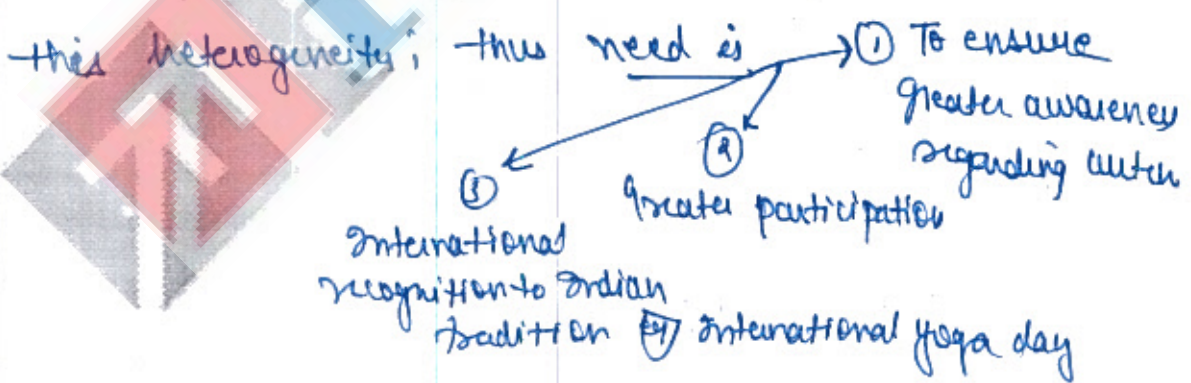 this heterogeneity; thus need is → ① To ensure
greater awareness
regarding
②
Greater participation
③
International
recognition to Indian
tradition eg International yoga day